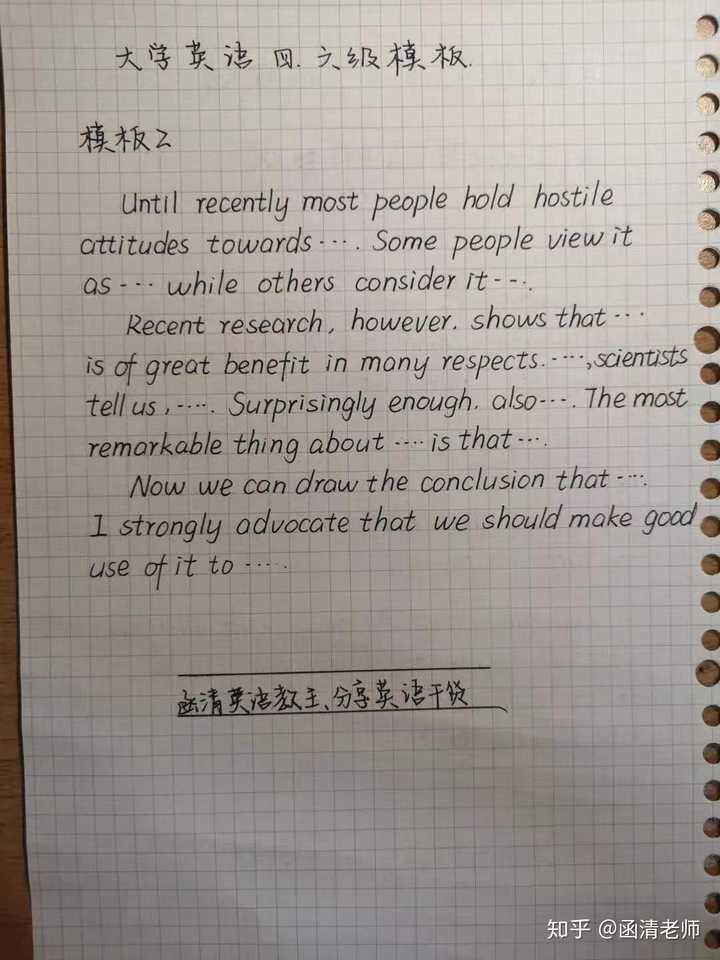 大学英语四.六级模板.
模板2
Until recently most people hold hostile
attitudes towards····. Some people view it
as ··· while others consider it ···.
Recent research, however. shows that ···
is of great benefit in many respects.····,scientists
tell us,····. Surprisingly enough. also···. The most
remarkable thing about ···· is that ···.
Now we can draw the conclusion that ···.
I strongly advocate that we should make good
use of it to ·····
函清英语教主、分享英语干货
知乎 @函清老师